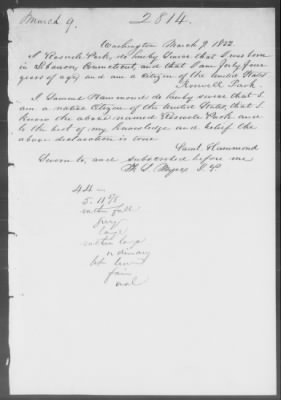 March 9.
2814.
Washington March 9. 1852
I Roswell Park, do hereby swear that I was born
in Lebanon, Connecticut, and that I am forty four
years of age, and am a Citizen of the United States
Roswell Park.
I Samuel Hammond do hereby swear that I
am a native Citizen of the United States, that I
know the above named Roswell Park and
to the best of my knowledge and belief the
above declaration is true
Saml. Hammond
Sworn to and subscribed before me
44
5. 11
rather full
grey
large
rather large
ordinary
fair
oval